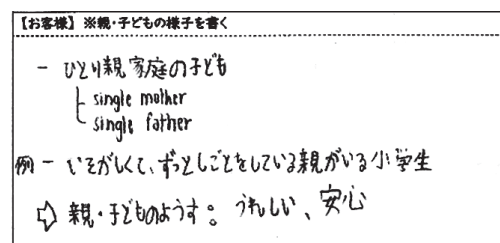 【お客様】※親・子どもの様子を書く
- ひとり親家庭の子ども
single mother
single father
例 - いそがしくて、ずっとしごとをしている親がいる小学生
⇨ 親・子どものようす：うれしい、安心